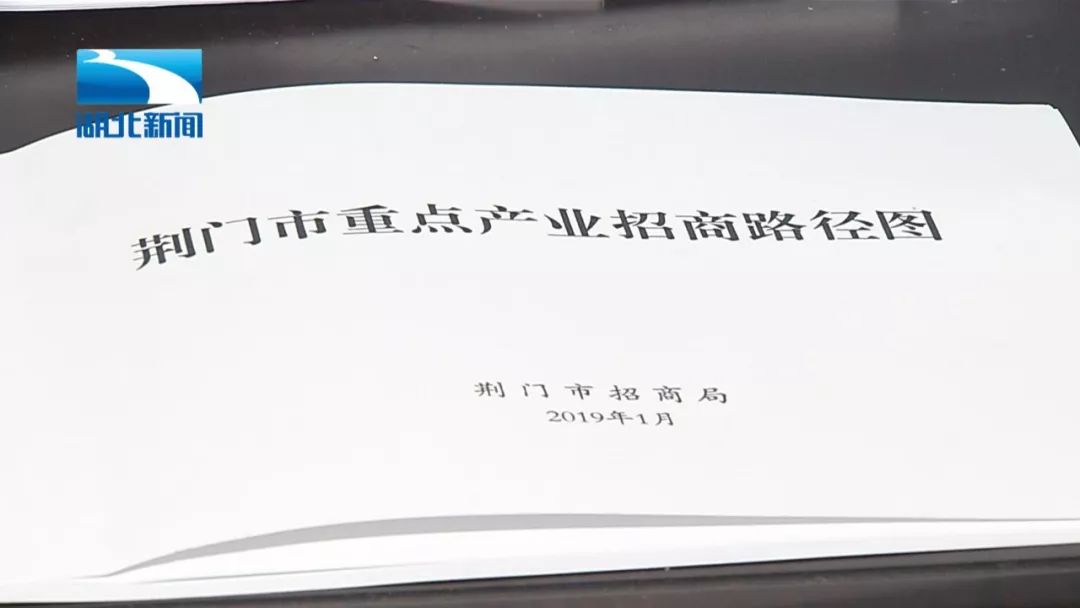 湖北新闻
荆门市重点产业招商路径图
荆门市招商局
2019年1月